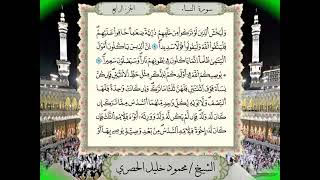 سورة النساء
الجزء الرابع
وَلْيَخْشَ ٱلَّذِينَ لَوْ تَرَكُوا۟ مِنْ خَلْفِهِمْ ذُرِّيَّةً ضِعَٰفًا خَافُوا۟ عَلَيْهِمْ
فَلْيَتَّقُوا۟ ٱللَّهَ وَلْيَقُولُوا۟ قَوْلًا سَدِيدًا ۝٩ إِنَّ ٱلَّذِينَ يَأْكُلُونَ أَمْوَٰلَ
ٱلْيَتَٰمَىٰ ظُلْمًا إِنَّمَا يَأْكُلُونَ فِى بُطُونِهِمْ نَارًا وَسَيَصْلَوْنَ سَعِيرًا ۝١٠
يُوصِيكُمُ ٱللَّهُ فِىٓ أَوْلَٰدِكُمْ لِلذَّكَرِ مِثْلُ حَظِّ ٱلْأُنثَيَيْنِ فَإِن كُنَّ
نِسَآءً فَوْقَ ٱثْنَتَيْنِ فَلَهُنَّ ثُلُثَا مَا تَرَكَ وَإِن كَانَتْ وَٰحِدَةً فَلَهَا
ٱلنِّصْفُ وَلِأَبَوَيْهِ لِكُلِّ وَٰحِدٍ مِّنْهُمَا ٱلسُّدُسُ مِمَّا تَرَكَ إِن
كَانَ لَهُۥ وَلَدٌ فَإِن لَّمْ يَكُن لَّهُۥ وَلَدٌ وَوَرِثَهُۥٓ أَبَوَاهُ فَلِأُمِّهِ ٱلثُّلُثُ فَإِن
كَانَ لَهُۥٓ إِخْوَةٌ فَلِأُمِّهِ ٱلسُّدُسُ مِنۢ بَعْدِ وَصِيَّةٍ يُوصِى بِهَآ أَوْ
الشيخ / محمود خليل الحصري